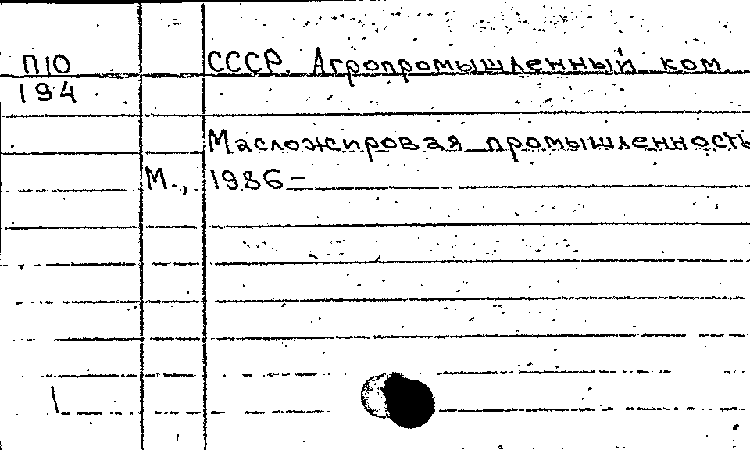 П10 СССР. Агропромышленный ком.
194
Масложировая промышленность
М., 1986–